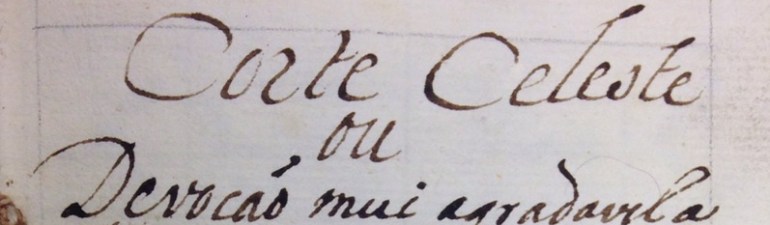 Corte Celeste
ou
Devocaó mui agradavel a